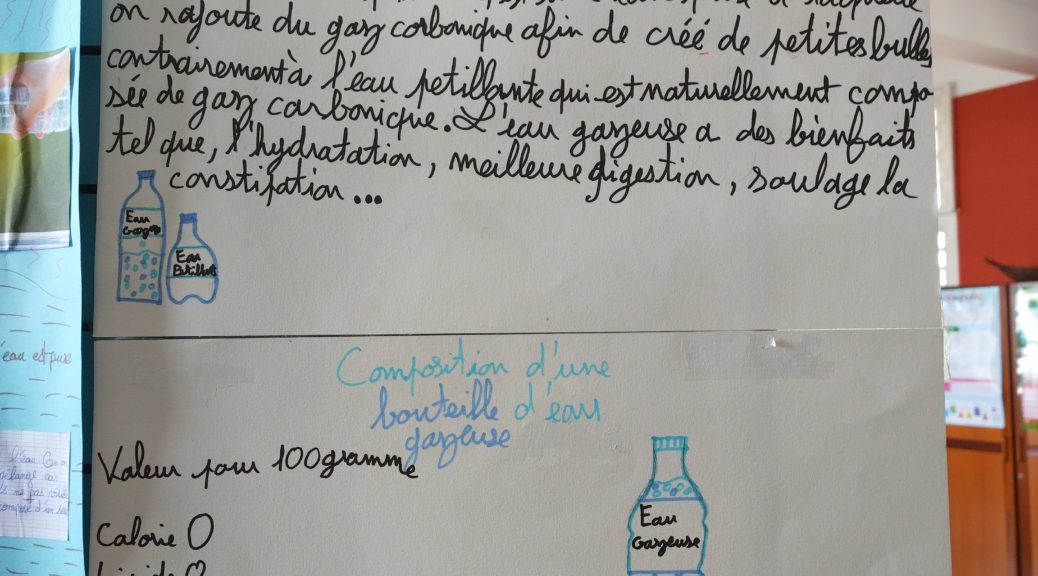 on rajoute du gaz carbonique afin de créé de petites bulles
contrairement à l'eau petillante qui est naturellement compo
sée de gaz carbonique. L'eau gazeuse a des bienfaits
tel que, l'hydratation, meilleure digestion, soulage la
constipation...
Eau
Gazeuse
Eau
Petillante
eau est pure
Composition d'une
bouteille d'eau
gazeuse
Valeur pour 100gramme
Calorie 0
Eau
Gazeuse